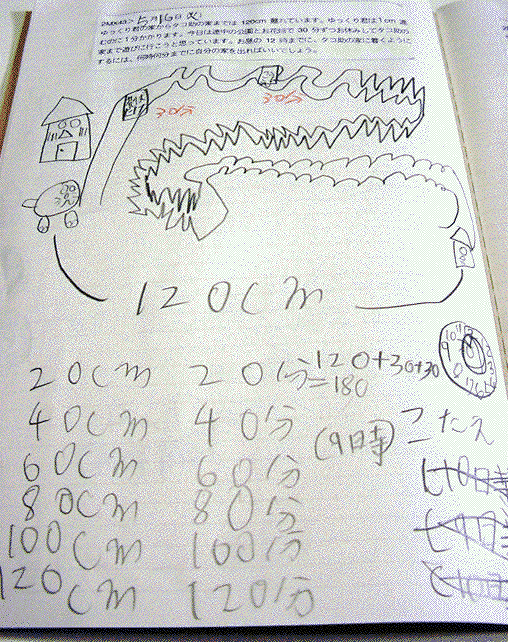 5月16日(火)
ゆっくり君の家からタコ助の家までは 120cm 離れています。ゆっくり君は1cm 進
むのに1分かかります。今日は途中の公園とお花屋で 30 分ずつお休みしてタコ助の
家まで遊びに行こうと思っています。お昼の 12 時までに、タコ助の家に着くように
するには、何時何分までに自分の家を出ればいいでしょう。
30分
30分
120cm
20cm 20分 120+30+30
=180
40cm 40分
(9時) こたえ
60cm 60分
80cm 80分
100cm 100分
120cm 120分